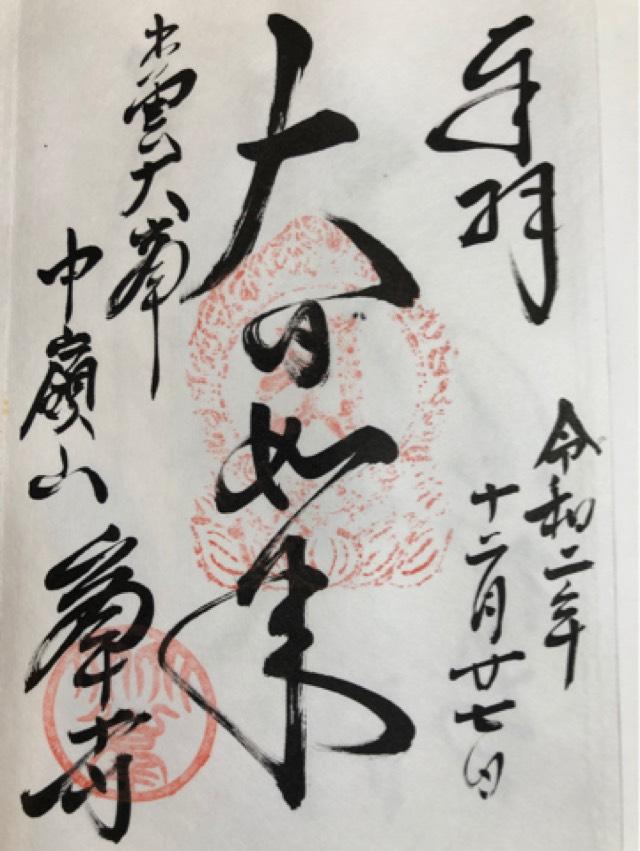 奉拝
令和二年
十二月廿七日
大日如来
出雲大峯
中嶺山
峯寺